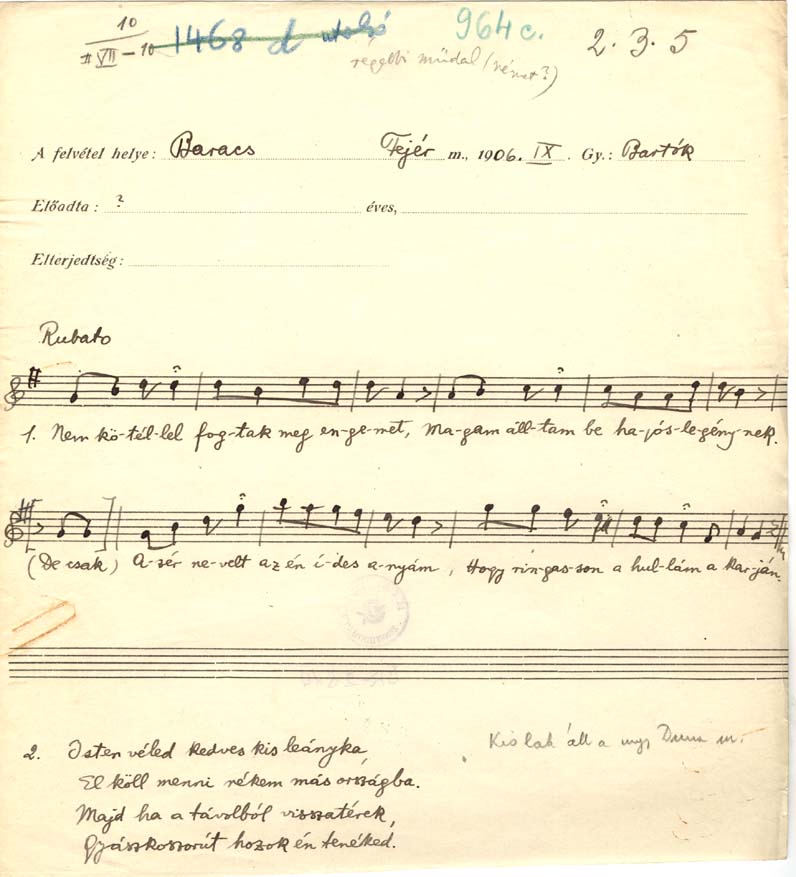 10
# VII – 10
1468 d utolsó
964 c.
2. 3. 5
régebbi műdal (német?)
A felvétel helye: Baracs Fejér m., 1906. IX. Gy.: Bartók
Előadta: ? éves,
Elterjedtség:
Rubato
1. Nem kö-tél-lel fog-tak meg en-ge-met, Ma-gam áll-tam be ha-jós-le-gény-nek.
(De csak) A-zér ne-velt az én í-des a-nyám, Hogy rin-gas-son a hul-lám a kar-ján.
2. Isten véled kedves kis leányka,
El köll menni nékem más országba.
Majd ha a távolból visszatérek,
Gyászkoszorút hozok én tenéked.
Kis lak áll a nagy Duna m.